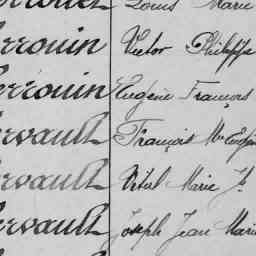 Louis Marie
rrouin Victor Philippe
errouin Eugène François
ervault François M Eugèn
ervault Vital Marie Jh
ervault Joseph Jean Marie